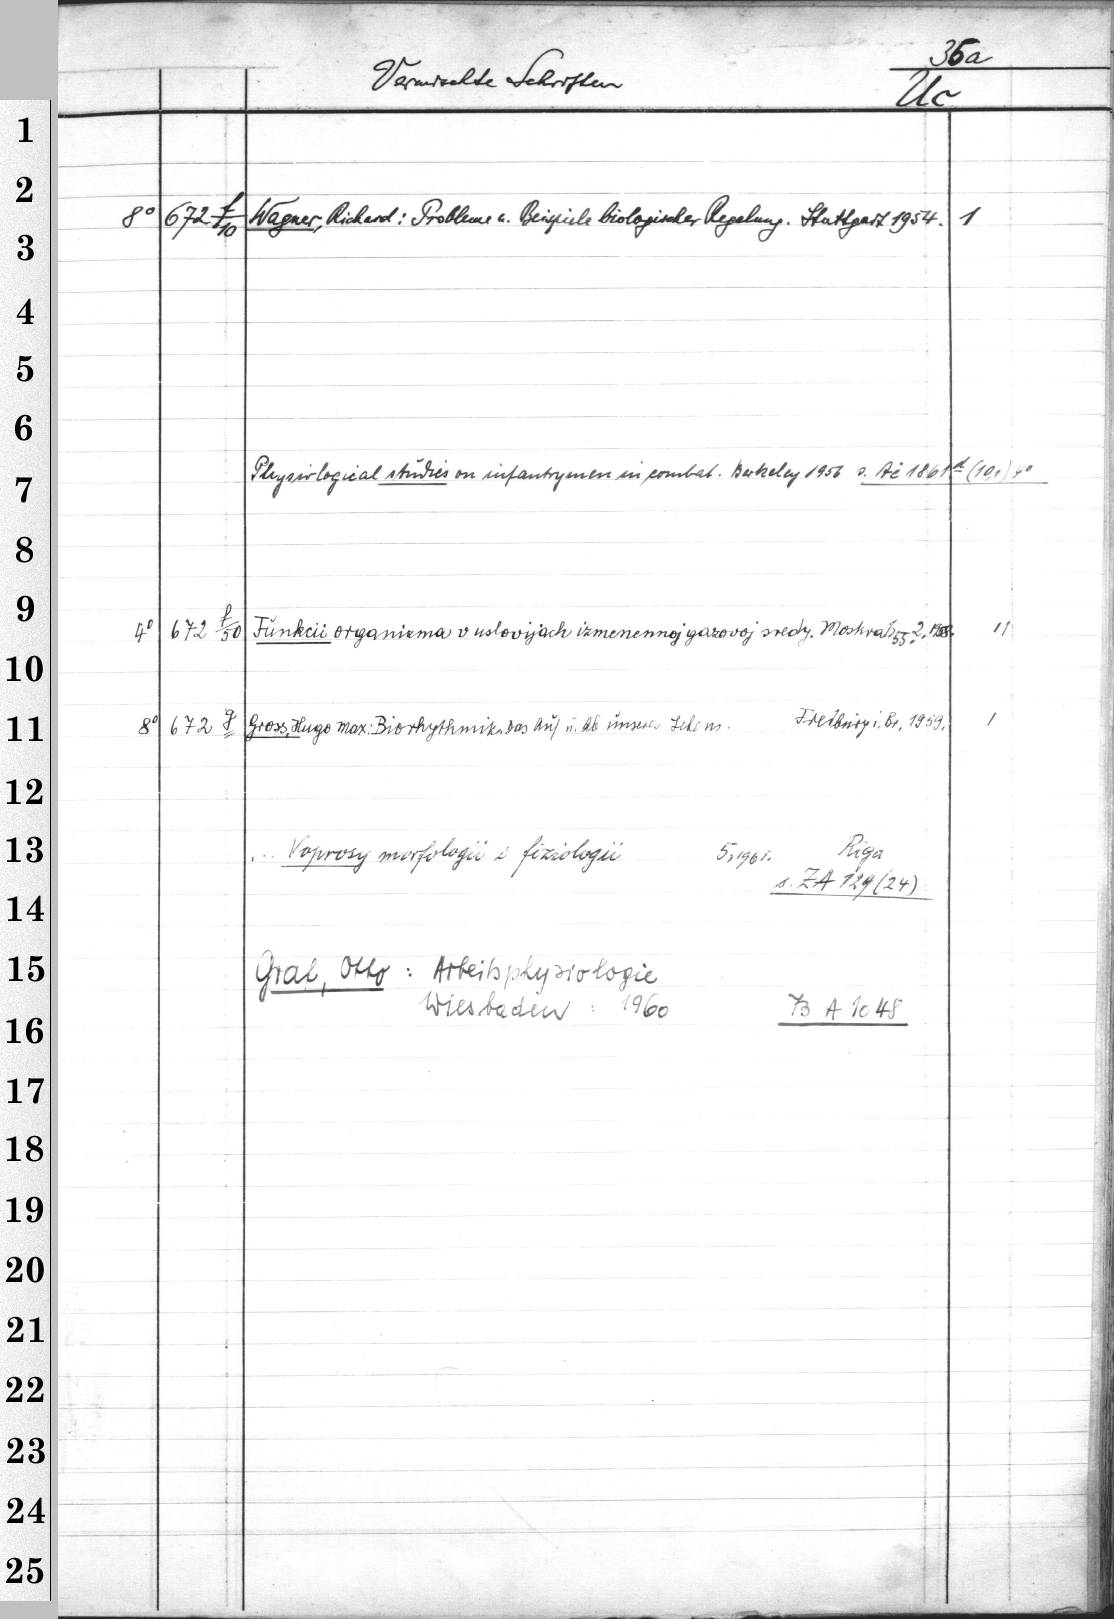 35a
Vermischte Schriften
Uc
1
2
8° 672 f/10 Wagner, Richard: Probleme u. Beispiele biologischer Regelung. Stuttgart 1954. 1
3
4
5
6
Physiological studies on infantrymen in combat. Berkeley 1956 s. Ai 1861 d (10,) 4°
7
8
9
4° 672 f/50 Funkcii organizma v uslovijach izmenennoj gazovoj sredy. Moskva 55. 2. 1958. 11
10
8° 672 g Gross, Hugo Max: Biorhythmik. Das Auf u. Ab unseres Lebens. Freiburg i. Br. 1959. 1
11
12
... Voprosy morfologii i fiziologii 5, 1961. Riga
13
s. ZA 129 (24)
14
15 Graf, Otto : Arbeitsphysiologie
Wiesbaden : 1960 B A Ic 48
16
17
18
19
20
21
22
23
24
25